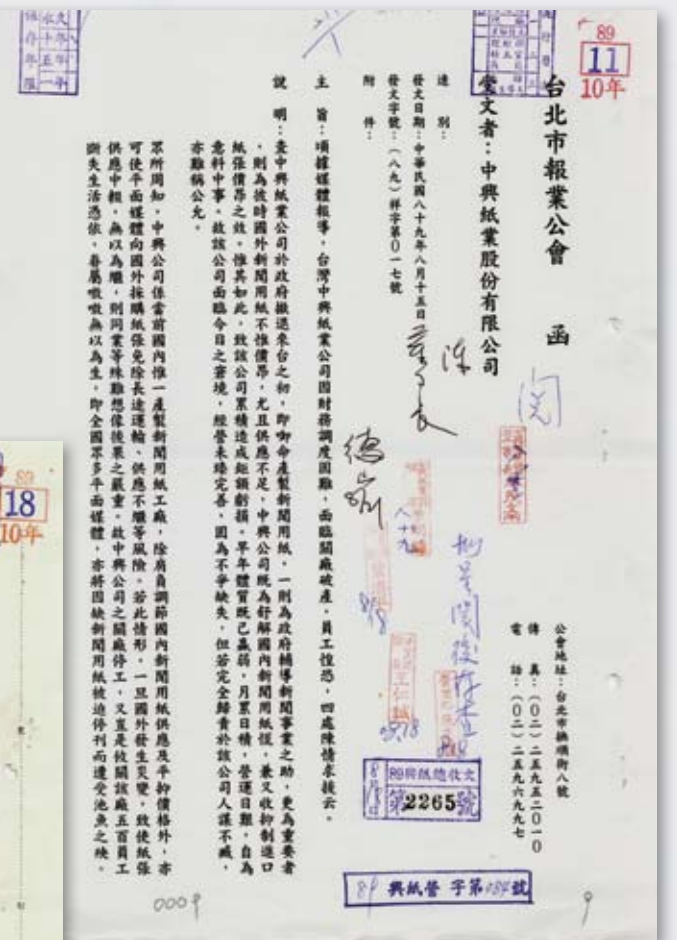 台北市報業公會　函
受文者：中興紙業股份有限公司
速別：
發文日期：中華民國八十九年八月十五日
發文字號：（八九）祥字第０一七號
附件：
公會地址：台北市撫順街八號
傳真：（０二）二五九五二０一０
電話：（０二）二五九六九九七
主旨：頃據媒體報導，台灣中興紙業公司因財務調度困難，面臨關廠破產，員工惶恐，四處陳情求援云。
說明：查中興紙業公司於政府撤退來台之初，即啣命產製新聞用紙，一則為政府輔導新聞事業之助，更為重要者
，則為彼時國外新聞用紙不惟價昂，尤且供應不足，中興公司既為舒解國內新聞用紙慌，兼又收抑制進口
紙張價昂之效。惟其如此，致該公司累積造成鉅額虧損。早年體質既已羸弱，月累日積，營運日艱，自為
意料中事。故該公司面臨今日之窘境，經營未臻完善，固為不爭缺失，但若完全歸責於該公司人謀不臧，
亦難稱公允。
眾所周知，中興公司係當前國內惟一產製新聞用紙工廠，除肩負調節國內新聞用紙供應及平抑價格外，亦
可使平面媒體向國外採購紙張免除長途運輸、供應不繼等風險。若此情形，一旦國外發生災變，致使紙張
供應中輟，無以為繼，則同業等殊難想像後果之嚴重。故中興公司之關廠停工，又豈是攸關該廠五百員工
斷失生活憑依，眷屬嗷嗷無以為生，即全國眾多平面媒體，亦將因缺新聞用紙被迫停刊而遭受池魚之殃。
89
11
10年
閱
陳
八十九
8/18
王仁誠
89興紙總收文
第2265號
89 興紙營 字第084號
0009
9
89
18
10年